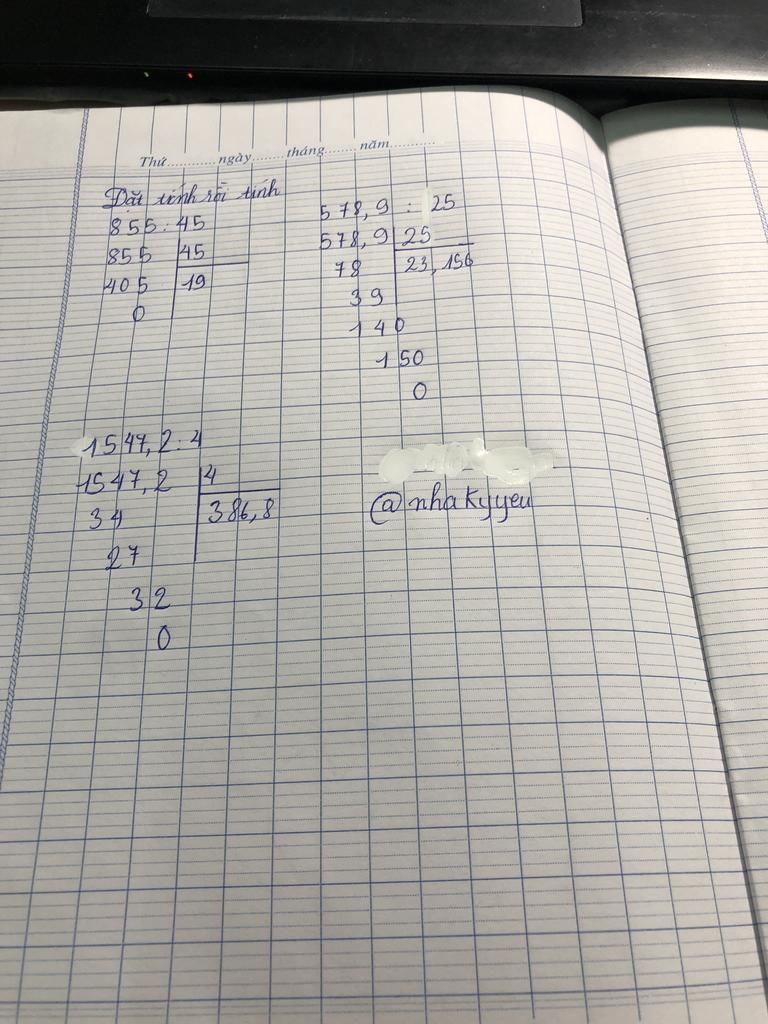 Thứ............ngày........tháng........năm............
Đặt tính rồi tính
855 : 45
855 45
405 19
0
578,9 : 25
578,9 25
78 23,156
39
140
150
0
1547,2 : 4
1547,2 4
34 386,8
27
32
0
@nhakyyeu